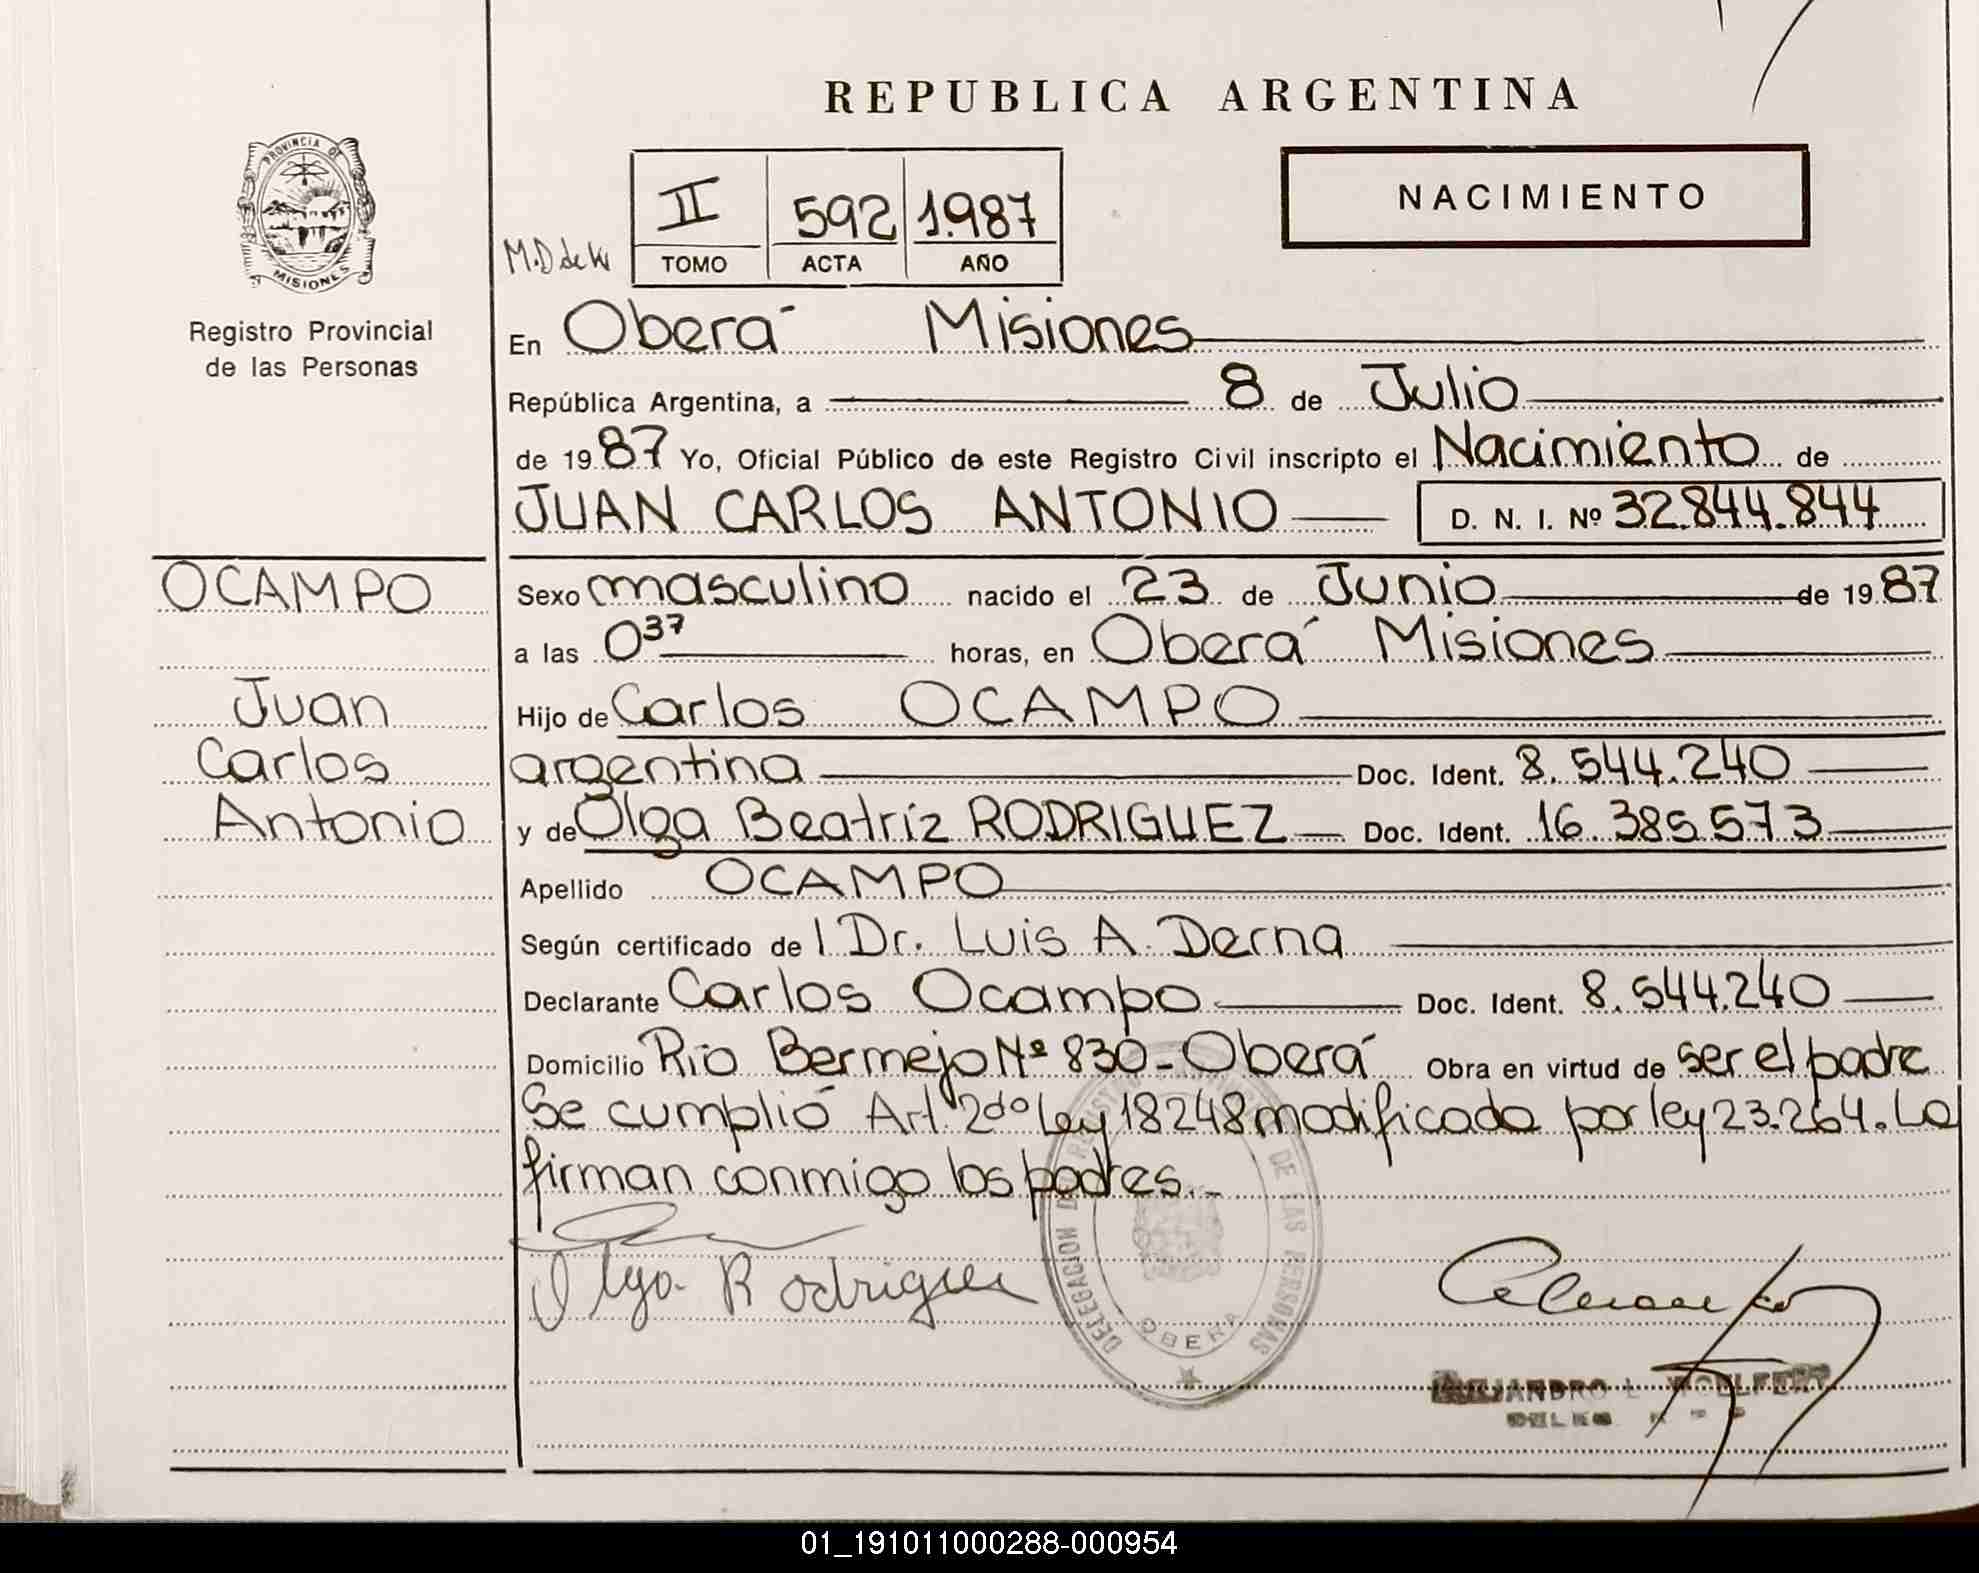 REPUBLICA ARGENTINA
PROVINCIA DE
MISIONES
Registro Provincial
de las Personas
NACIMIENTO
II 592 1.987
M.D de
TOMO ACTA AÑO
En Oberá Misiones
República Argentina, a 8 de Julio
de 1987 Yo, Oficial Público de este Registro Civil inscripto el Nacimiento de
JUAN CARLOS ANTONIO D. N. I. Nº 32.844.844
OCAMPO
Sexo masculino nacido el 23 de Junio de 1987
a las 0³⁷ horas, en Oberá Misiones
Juan
Hijo de Carlos OCAMPO
Carlos
argentina Doc. Ident. 8.544.240
Antonio
y de Olga Beatríz RODRIGUEZ Doc. Ident. 16.385.573
Apellido OCAMPO
Según certificado de l Dr. Luis A. Derna
Declarante Carlos Ocampo Doc. Ident. 8.544.240
Domicilio Río Bermejo Nº 830 - Oberá Obra en virtud de ser el padre
Se cumplió Art. 2do Ley 18248 modificada por ley 23.264. La
firman conmigo los padres.-
Olga Rodriguez
DELEGACION DEL REGISTRO PROVINCIAL DE LAS PERSONAS
OBERA
ALEJANDRO L.
01_191011000288-000954